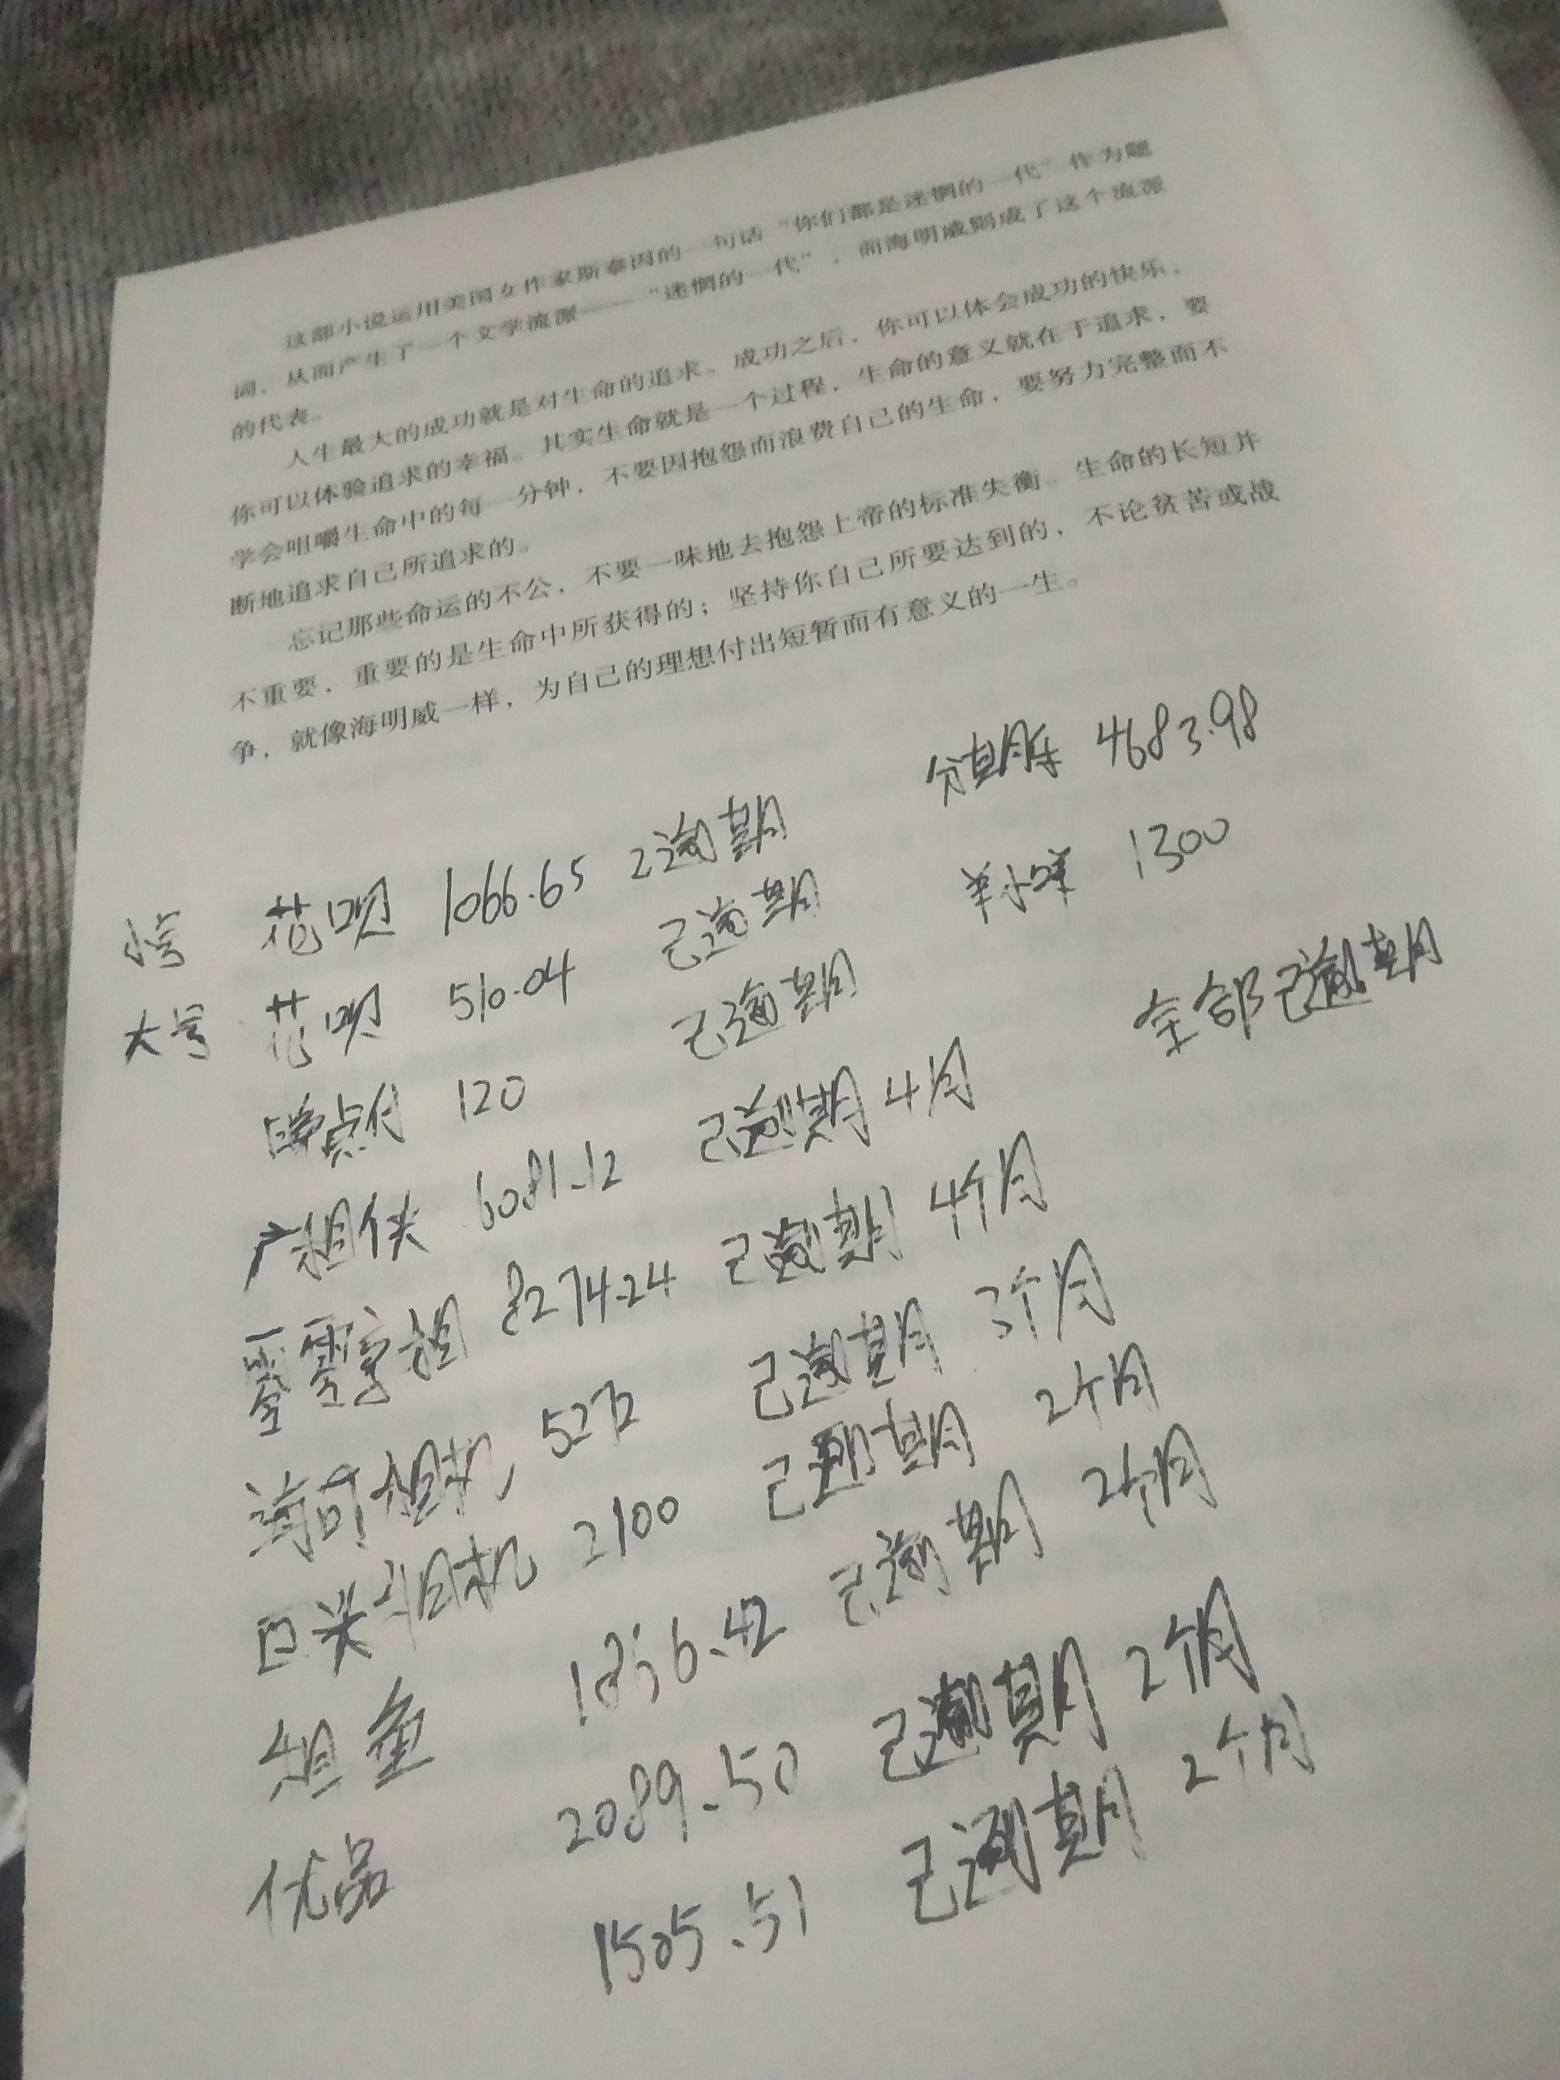 这部小说运用美国女作家斯泰因的一句话“你们都是迷惘的一代”作为题
词，从而产生了一个文学流派——“迷惘的一代”，而海明威则成了这个流派
的代表。
人生最大的成功就是对生命的追求。成功之后，你可以体会成功的快乐，
你可以体验追求的幸福。其实生命就是一个过程，生命的意义就在于追求，要
学会咀嚼生命中的每一分钟，不要因抱怨而浪费自己的生命，要努力完整而不
断地追求自己所追求的。
忘记那些命运的不公，不要一味地去抱怨上帝的标准失衡。生命的长短并
不重要，重要的是生命中所获得的；坚持你自己所要达到的，不论贫苦或战
争，就像海明威一样，为自己的理想付出短暂而有意义的一生。
分期乐 4683.98
小号 花呗 1066.65 已逾期
羊小咩 1300
大号 花呗 510.04 已逾期
全部已逾期
点付 120 已逾期
租侠 6081.12 已逾期 4月
享租 8274.24 已逾期 4个月
租机 已逾期 3个月
租机 2100 已逾期 2个月
租鱼 1856.42 已逾期 2个月
优品 2089.50 已逾期 2个月
1505.51 已逾期 2个月